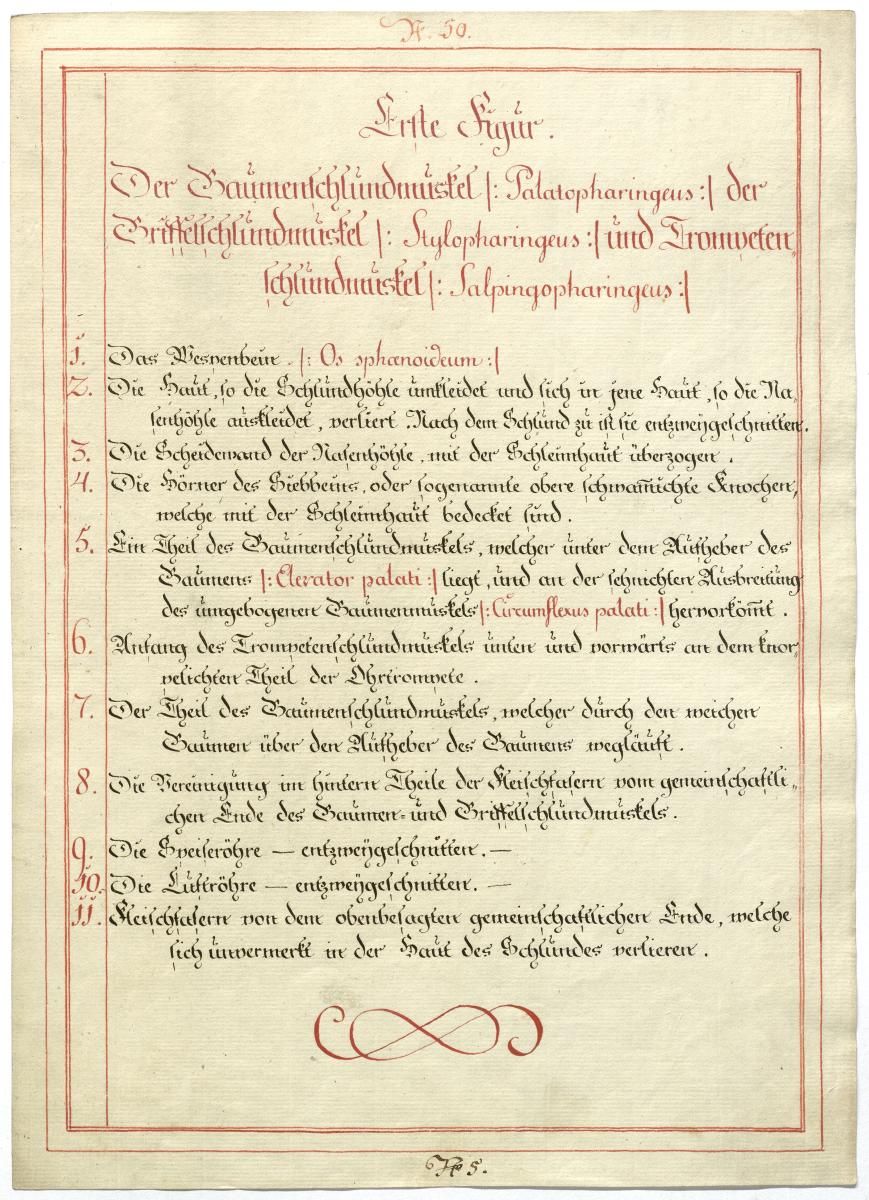 N. 50.
Erste Figur.
Der Gaumenschlundmuskel |: Palatopharingeus :| der
Griffelschlundmuskel |: Stylopharingeus :| und Trompeten„
schlundmuskel |: Salpingopharingeus :|
1. Das Wespenbein. |: Os sphœnoideum :|
2. Die Haut, so die Schlundhöhle umkleidet und sich in jene Haut, so die Na„
senhöhle auskleidet, verliert. Nach dem Schlund zu ist sie entzweygeschnitten.
3. Die Scheidewand der Nasenhöhle, mit der Schleimhaut überzogen.
4. Die Hörner des Siebbeins, oder sogenannte obere schwam̅ichte Knochen,
welche mit der Schleimhaut bedecket sind.
5. Ein Theil des Gaumenschlundmuskels, welcher unter dem Aufheber des
Gaumens |: Elevator palati :| liegt, und an der sehnichten Ausbreitung
des umgebogenen Gaumenmuskels |: Circumflexus palati :| hervorköm̅t.
6. Anfang des Trompetenschlundmuskels unten und vorwärts an dem knor„
pelichten Theil der Ohrtrompete.
7. Der Theil des Gaumenschlundmuskels, welcher durch den weichen
Gaumen über den Aufheber des Gaumens wegläuft.
8. Die Vereinigung im hintern Theile der Fleischfasern vom gemeinschaftli„
chen Ende des Gaumen= und Griffelschlundmuskels.
9. Die Speiseröhre — entzweygeschnitten. —
10. Die Luftröhre — entzweygeschnitten. —
11. Fleischfasern von dem obenbesagten gemeinschaftlichen Ende, welche
sich unvermerkt in der Haut des Schlundes verlieren.
5.